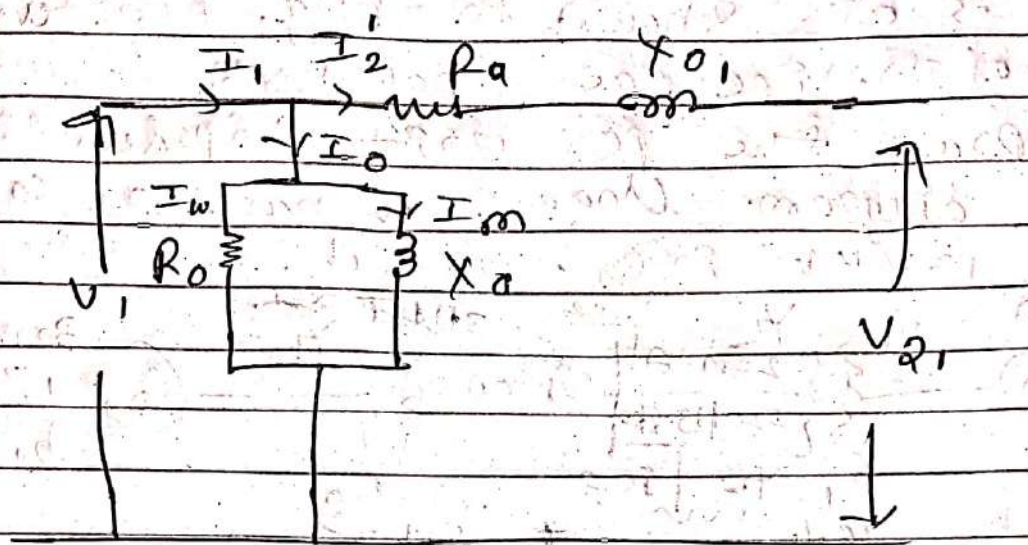 I₁ I₂' Ra X₀₁
I₀
I_w I_m
R₀ X_a
V₁ V₂₁